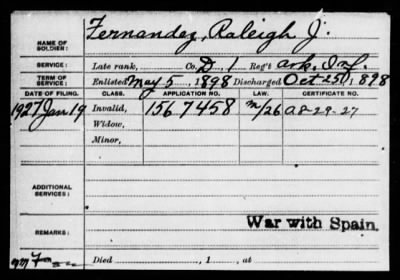 NAME OF SOLDIER: Fernandez, Raleigh J.
SERVICE: Late rank, Co. D, 1 Reg't Ark. Inf.
TERM OF SERVICE: Enlisted May 5, 1898 Discharged Oct 25, 1898
DATE OF FILING. CLASS. APPLICATION NO. LAW. CERTIFICATE NO.
1927 Jan 19 Invalid, 1567458 M/26 A 8-29-27
Widow,
Minor,
ADDITIONAL SERVICES:
War with Spain.
REMARKS:
Died , 1 , at